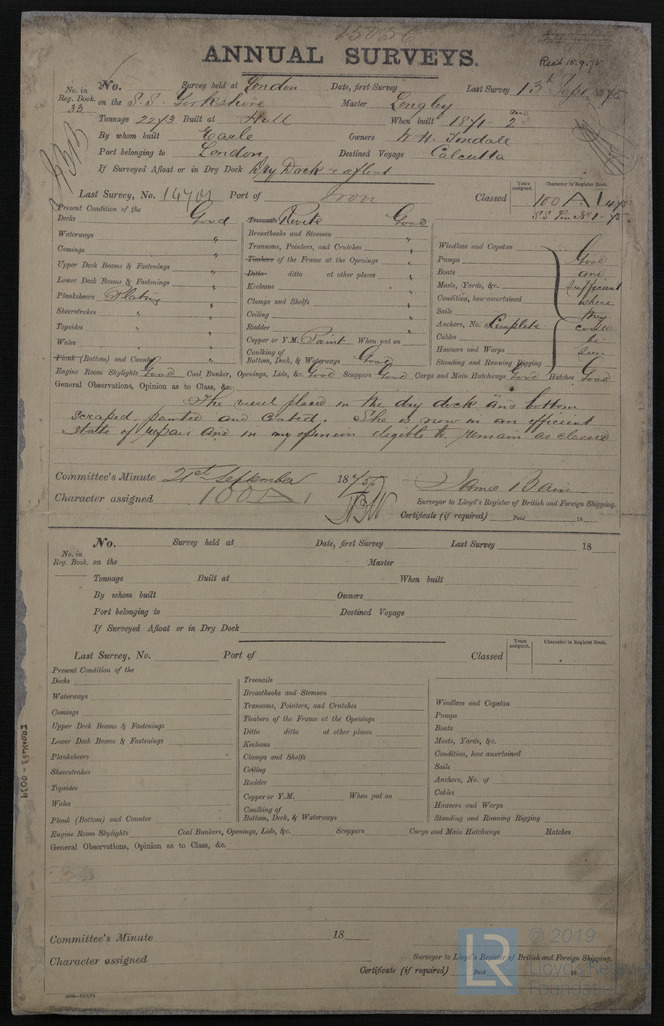 15056
ANNUAL SURVEYS.
Recd 15.9.75
No. Survey held at London Date, first Survey Last Survey 13th Sept 1875
No. in Reg. Book. 33 on the S.S. Yorkshire Master Longley
Tonnage 2273 Built at Hull When built 1871 - 2 mo
By whom built Earle Owners W. H. Tindale
Port belonging to London Destined Voyage Calcutta
If Surveyed Afloat or in Dry Dock Dry Dock & afloat
Years assigned. Character in Register Book.
Last Survey, No. Port of Iron Classed 100 A 1 4,75
S.S. No 1-75
Present Condition of the
Decks Good
Waterways "
Comings "
Upper Deck Beams & Fastenings "
Lower Deck Beams & Fastenings "
Planksheers Plating "
Sheerstrakes "
Topsides "
Wales "
Plank (Bottom) and Counter Good
Treenails Rivets Good
Breasthooks and Stemson "
Transoms, Pointers, and Crutches "
Timbers of the Frame at the Openings "
Ditto ditto at other places "
Keelsons "
Clamps and Shelfs "
Ceiling "
Rudder "
Copper or Y.M. Paint When put on
Caulking of Bottom, Deck, & Waterways Good
Windlass and Capstan
Pumps
Boats
Masts, Yards, &c.
Condition, how ascertained
Sails
Anchors, No. Complete
Cables
Hawsers and Warps
Standing and Running Rigging
Good
and
sufficient
where
they
could
be
seen
Engine Room Skylights Good Coal Bunker, Openings, Lids, &c. Good Scuppers Good Cargo and Main Hatchways Good Hatches Good
General Observations, Opinion as to Class, &c.
The vessel placed in the dry dock and bottom
scraped painted and coated. She is now in an efficient
state of repair and in my opinion eligible to remain as classed
Committee's Minute 21st September 1875 James Bain
Character assigned 100A1 Surveyor to Lloyd's Register of British and Foreign Shipping.
Certificate (if required) Paid 18
No. Survey held at Date, first Survey Last Survey 18
No. in Reg. Book. on the Master
Tonnage Built at When built
By whom built Owners
Port belonging to Destined Voyage
If Surveyed Afloat or in Dry Dock
Years assigned. Character in Register Book.
Last Survey, No. Port of Classed
Present Condition of the
Decks
Waterways
Comings
Upper Deck Beams & Fastenings
Lower Deck Beams & Fastenings
Planksheers
Sheerstrakes
Topsides
Wales
Plank (Bottom) and Counter
Treenails
Breasthooks and Stemson
Transoms, Pointers, and Crutches
Timbers of the Frame at the Openings
Ditto ditto at other places
Keelsons
Clamps and Shelfs
Ceiling
Rudder
Copper or Y.M. When put on
Caulking of Bottom, Deck, & Waterways
Windlass and Capstan
Pumps
Boats
Masts, Yards, &c.
Condition, how ascertained
Sails
Anchors, No. of
Cables
Hawsers and Warps
Standing and Running Rigging
Engine Room Skylights Coal Bunkers, Openings, Lids, &c. Scuppers Cargo and Main Hatchways Hatches
General Observations, Opinion as to Class, &c.
Committee's Minute 18
Character assigned Surveyor to Lloyd's Register of British and Foreign Shipping.
Certificate (if required) Paid 18
LR © 2019
Lloyd's Register
Foundation